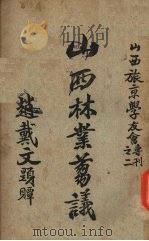 山西旅京學友會專刊
之二
山西林業芻議
趙戴文題贈